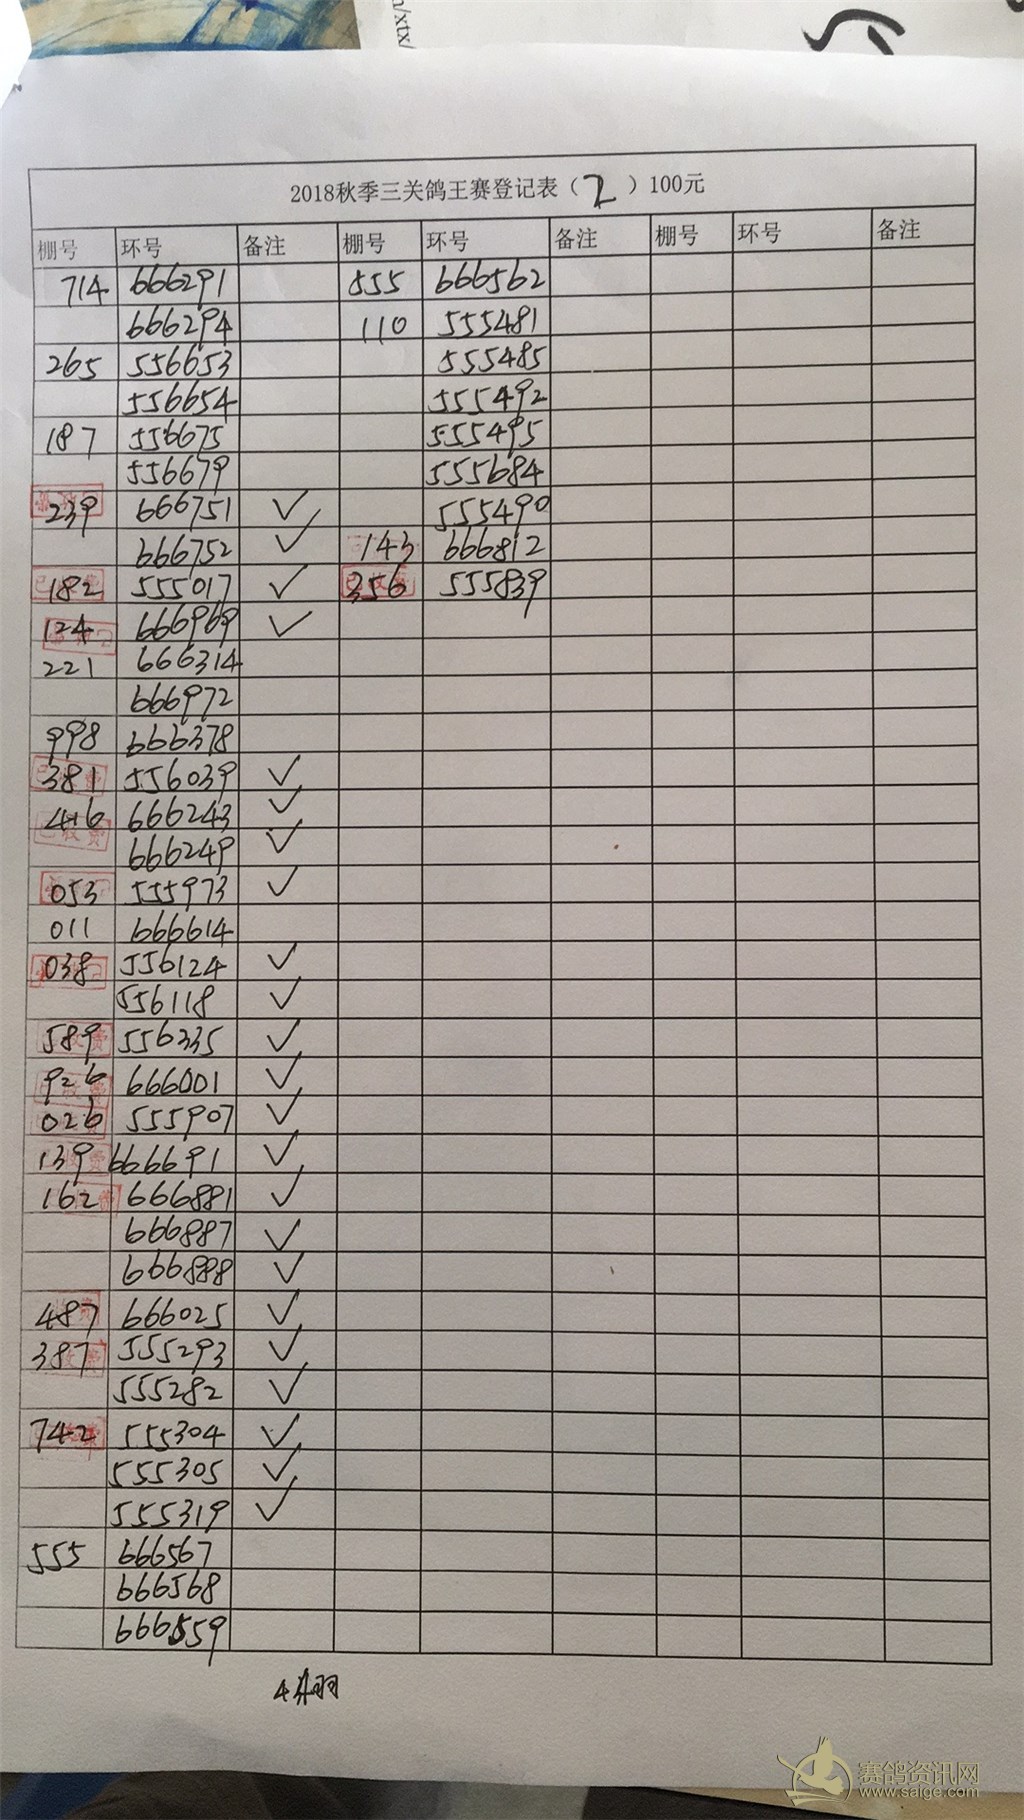 n/xtx/
2018秋季三关鸽王赛登记表（2）100元
棚号 环号 备注 棚号 环号 备注 棚号 环号 备注
714 666291 555 666562
666294 110 555481
265 556653 555485
556654 555492
187 556675 555495
556679 555684
239 666751 ✓ 555490
666752 ✓ 143 666812
182 555017 ✓ 356 555839
124 666969 ✓
221 666314
666972
998 666378
381 556039 ✓
416 666243 ✓
666249 ✓
053 555973 ✓
011 666614
038 556124 ✓
556118 ✓
589 556335 ✓
926 666001 ✓
026 555907 ✓
139 666691 ✓
162 666881 ✓
666887 ✓
666888 ✓
487 666025 ✓
387 555293 ✓
555282 ✓
742 555304 ✓
555305 ✓
555319 ✓
555 666567
666568
666559
赛鸽资讯网
www.saige.com